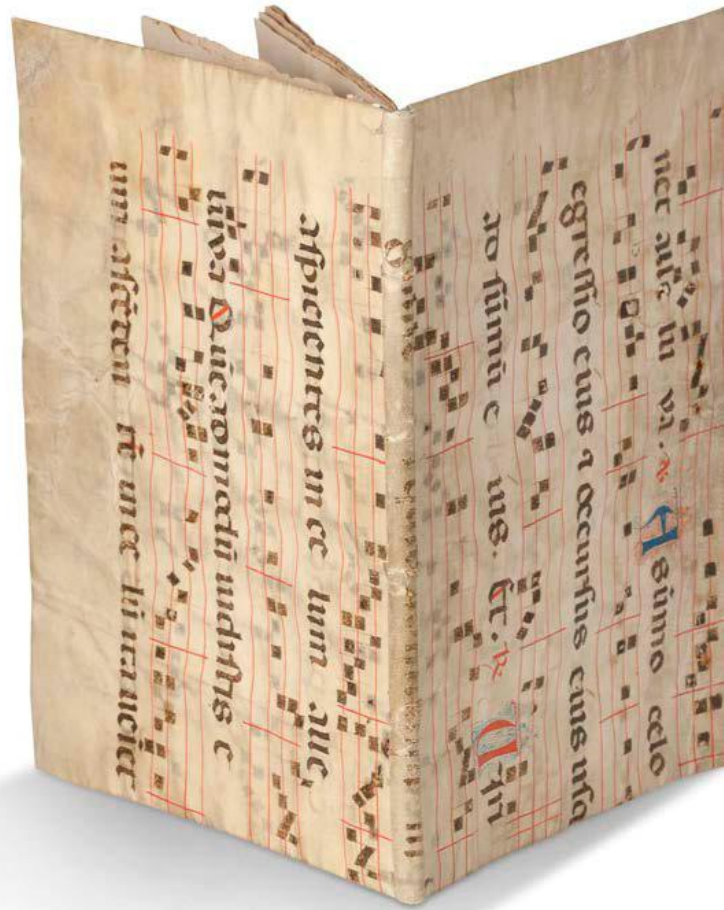 A summo celo
egressio eius ⁊ occursus eius usq
ad summū e ius. V iri
aspicientes in ce lum alle
luya Quemadmodū uidistis e
um ascenden tē in ce lū ita ueniet